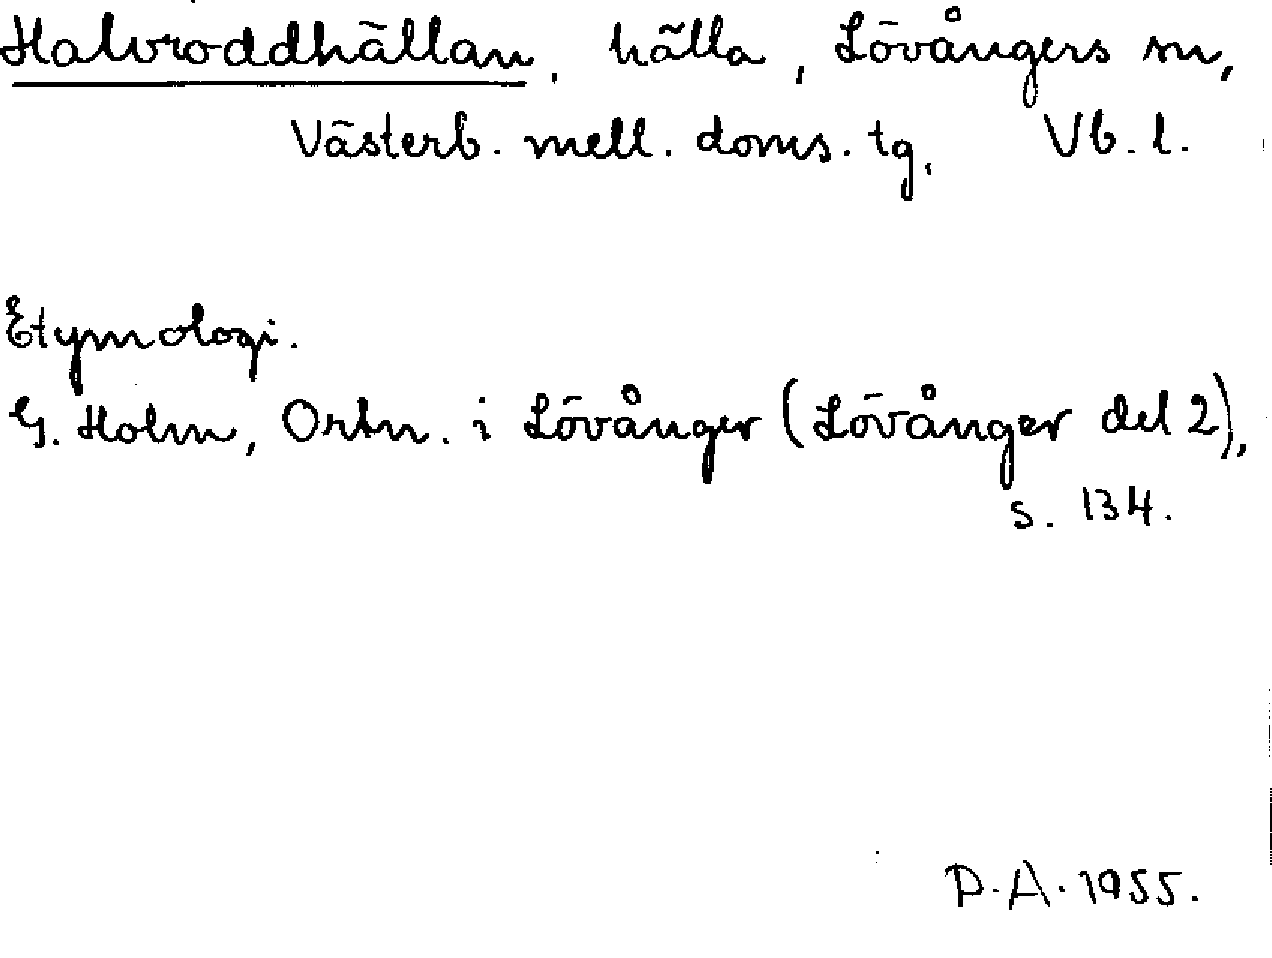 Halvroddhällan, hälla, Lövångers sn,
Västerb. mell. doms. tg, Vb. l.
Etymologi.
G. Holm, Ortn. i Lövånger (Lövånger del 2),
s. 134.
P.A. 1955.